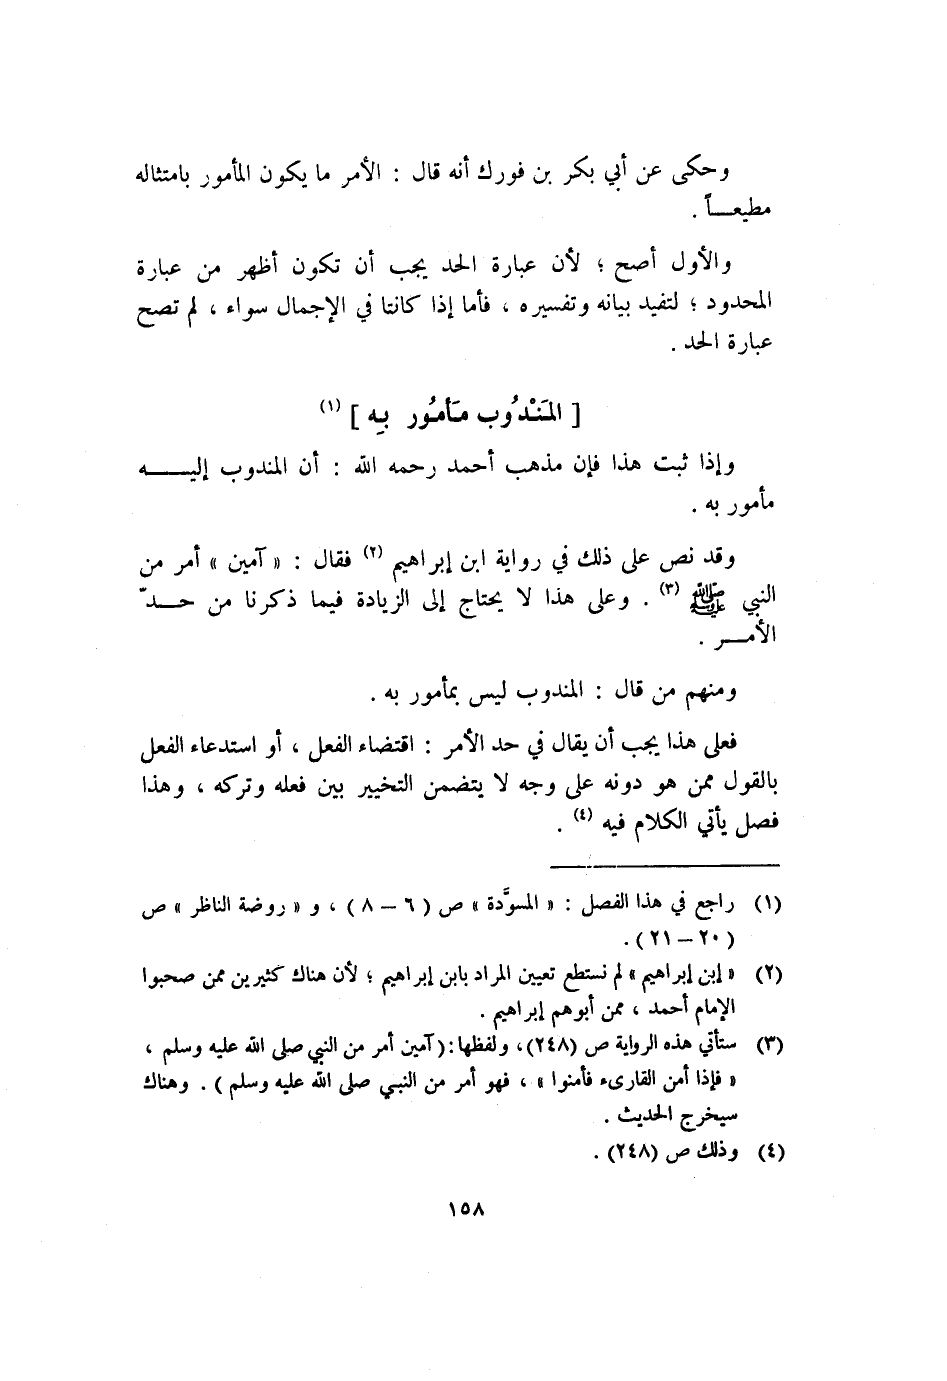 وحكى عن أبي بكر بن فورك أنه قال : الأمر ما يكون المأمور بامتثاله
مطيعـــاً .
والأول أصح ؛ لأن عبارة الحد يجب أن تكون أظهر من عبارة
المحدود ؛ لتفيد بيانه وتفسيره ، فأما إذا كانتا في الإجمال سواء ، لم تصح
عبارة الحد .
[ المَنْدُوب مَأمُور بِه ] (١)
وإذا ثبت هذا فإن مذهب أحمد رحمه الله : أن المندوب إليـــــه
مأمور به .
وقد نص على ذلك في رواية ابن إبراهيم (٢) فقال : « آمين » أمر من
النبي ﷺ (٣) . وعلى هذا لا يحتاج إلى الزيادة فيما ذكرنا من حـــدّ
الأمـــر .
ومنهم من قال : المندوب ليس بمأمور به .
فعلى هذا يجب أن يقال في حد الأمر : اقتضاء الفعل ، أو استدعاء الفعل
بالقول ممن هو دونه على وجه لا يتضمن التخيير بين فعله وتركه ، وهذا
فصل يأتي الكلام فيه (٤) .
(١) راجع في هذا الفصل : « المسوَّدة » ص ( ٦ – ٨ ) ، و « روضة الناظر » ص
( ٢٠ – ٢١ ) .
(٢) « إبن إبراهيم » لم نستطع تعيين المراد بابن إبراهيم ؛ لأن هناك كثيرين ممن صحبوا
الإمام أحمد ، ممن أبوهم إبراهيم .
(٣) ستأتي هذه الرواية ص (٢٤٨) ، ولفظها : ( آمين أمر من النبي صلى الله عليه وسلم ،
« فإذا أمن القارىء فأمنوا » ، فهو أمر من النبي صلى الله عليه وسلم ) . وهناك
سيخرج الحديث .
(٤) وذلك ص (٢٤٨) .
١٥٨